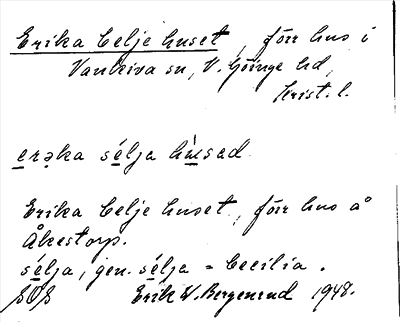 Erika Celje huset, förr hus i
Vankiva sn, V. Göinge hd,
Krist. l.
erəka sélja hùsəd
Erika Celje huset, förr hus å
Åkestorp.
sélja, gen. sélja = Cecilia.
Erik W. Bergenrud 1948.